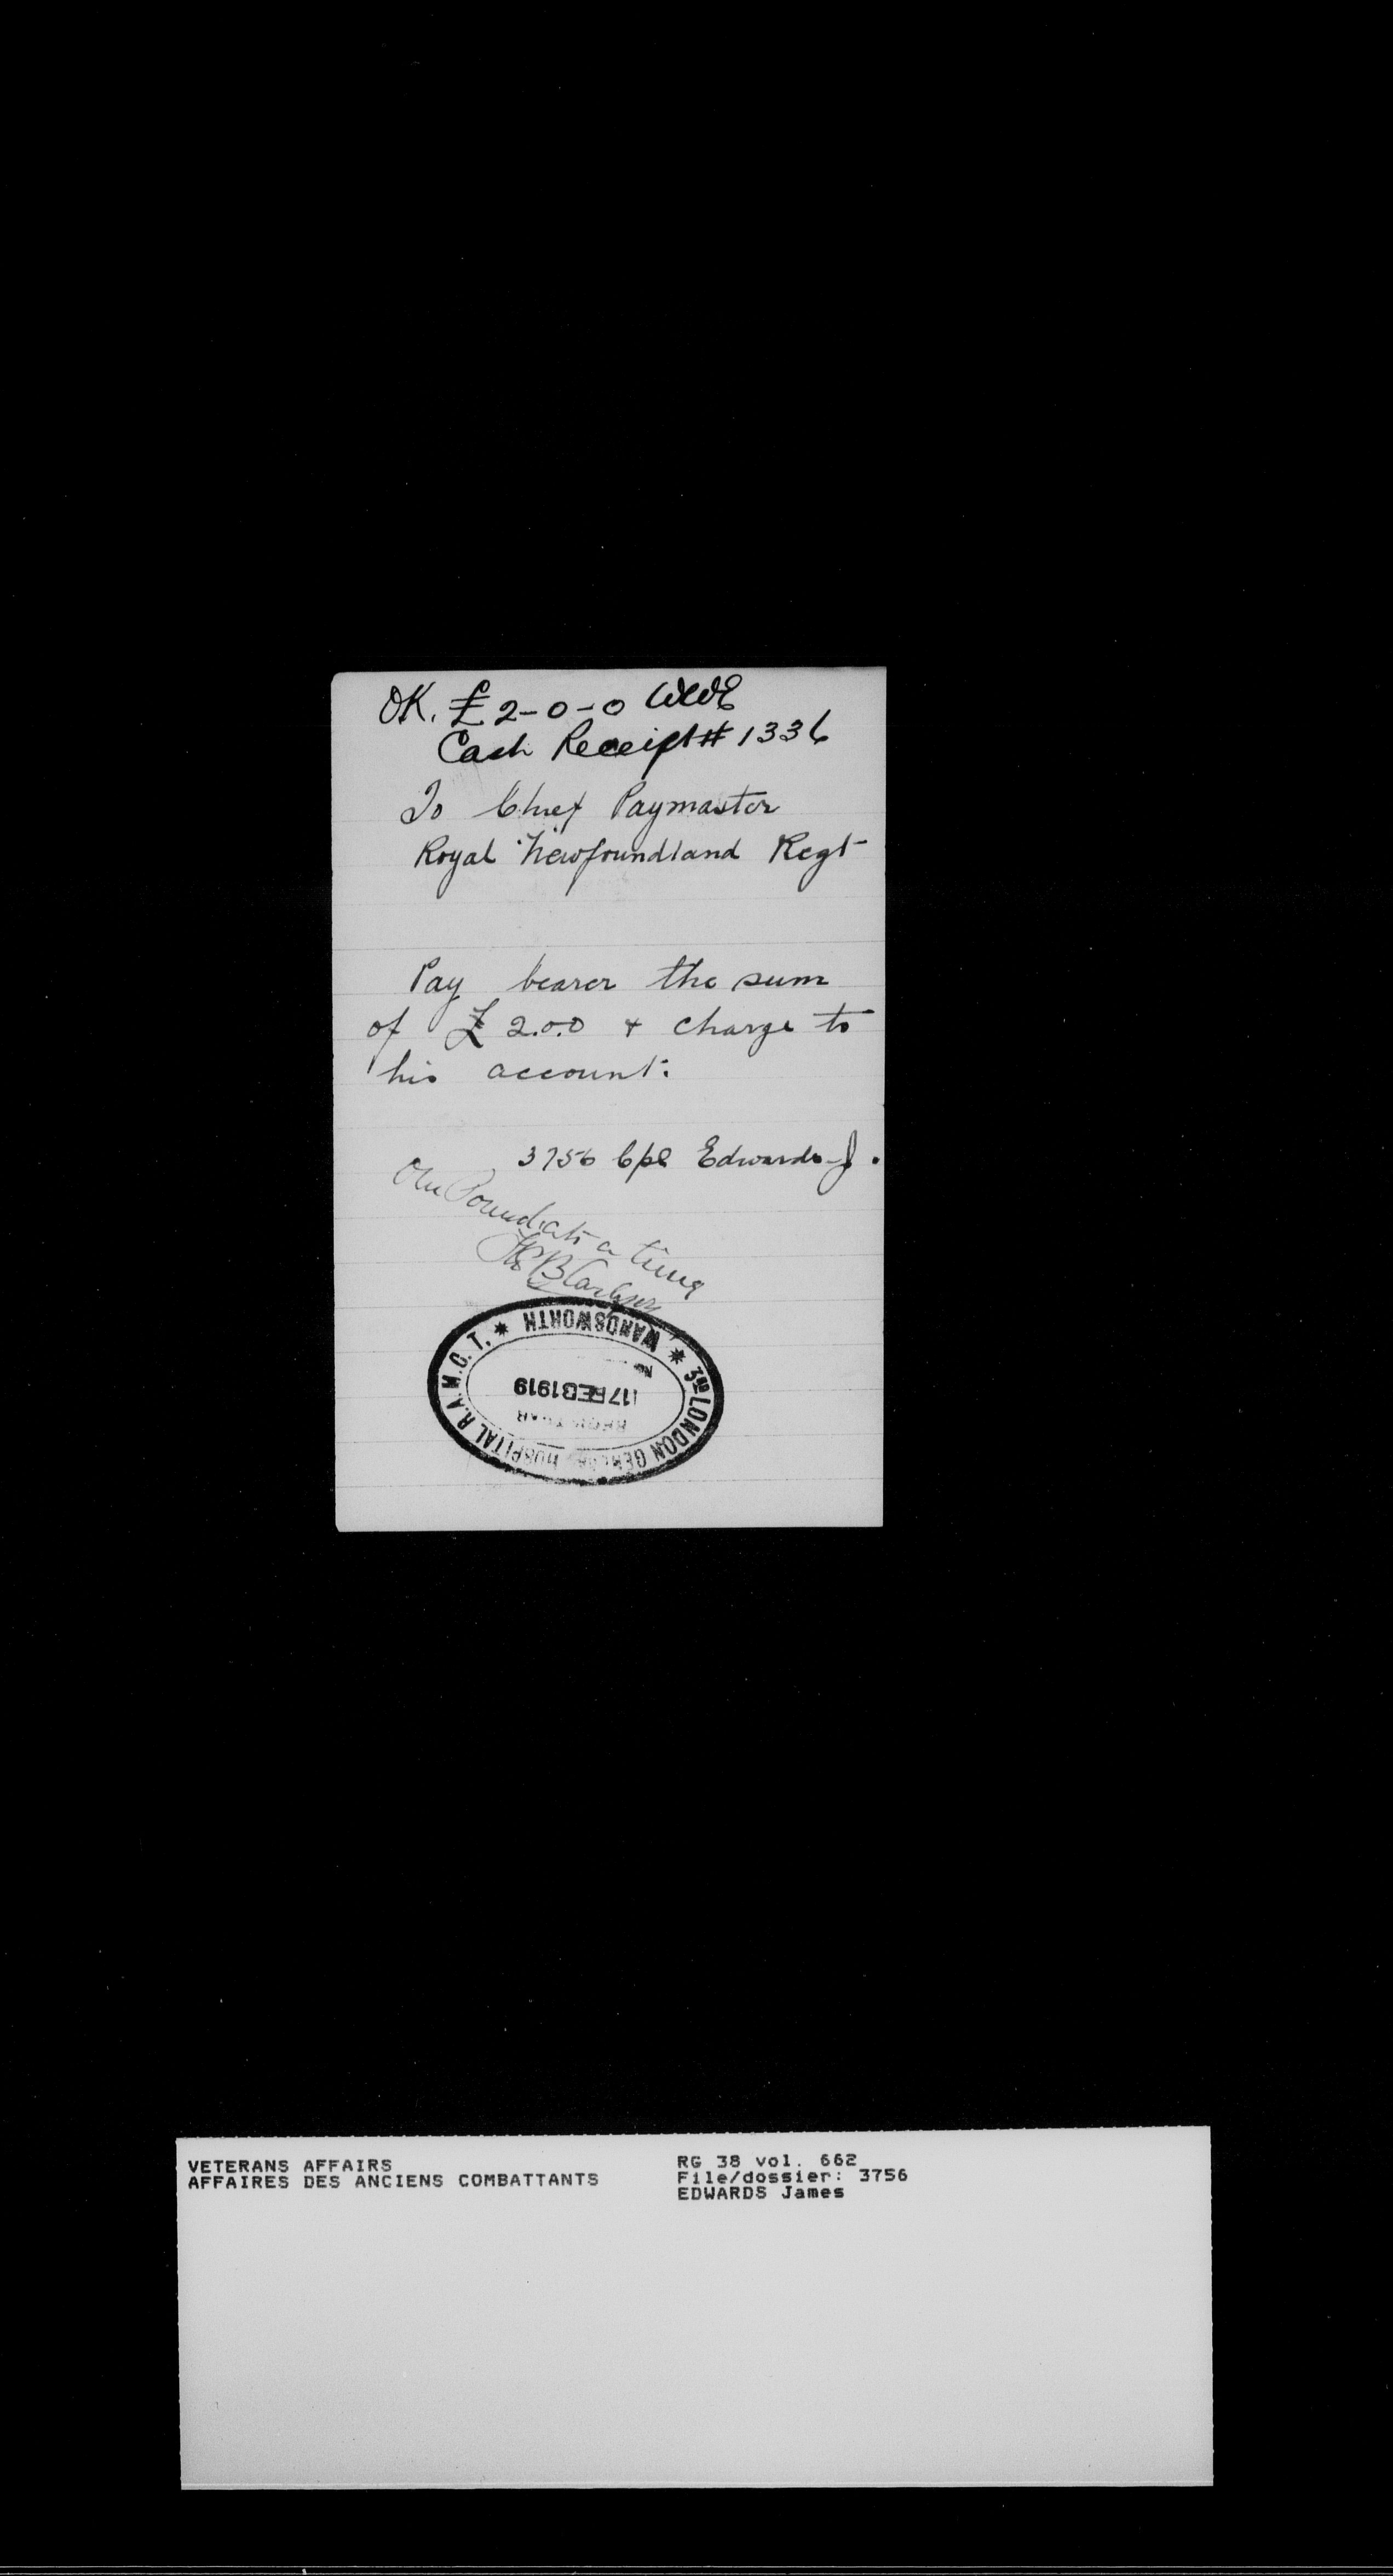 OK. £2-0-0
Cash Receipt # 1336
To Chief Paymaster
Royal Newfoundland Regt
Pay bearer the sum
of £2.0.0 + charge to
his account.
3756 Cpl Edwards J.
One Pound at a time
3RD LONDON GENERAL HOSPITAL R.A.M.C. T. * WANDSWORTH *
REGISTRAR
17 FEB 1919
VETERANS AFFAIRS
AFFAIRES DES ANCIENS COMBATTANTS
RG 38 vol. 662
File/dossier: 3756
EDWARDS James